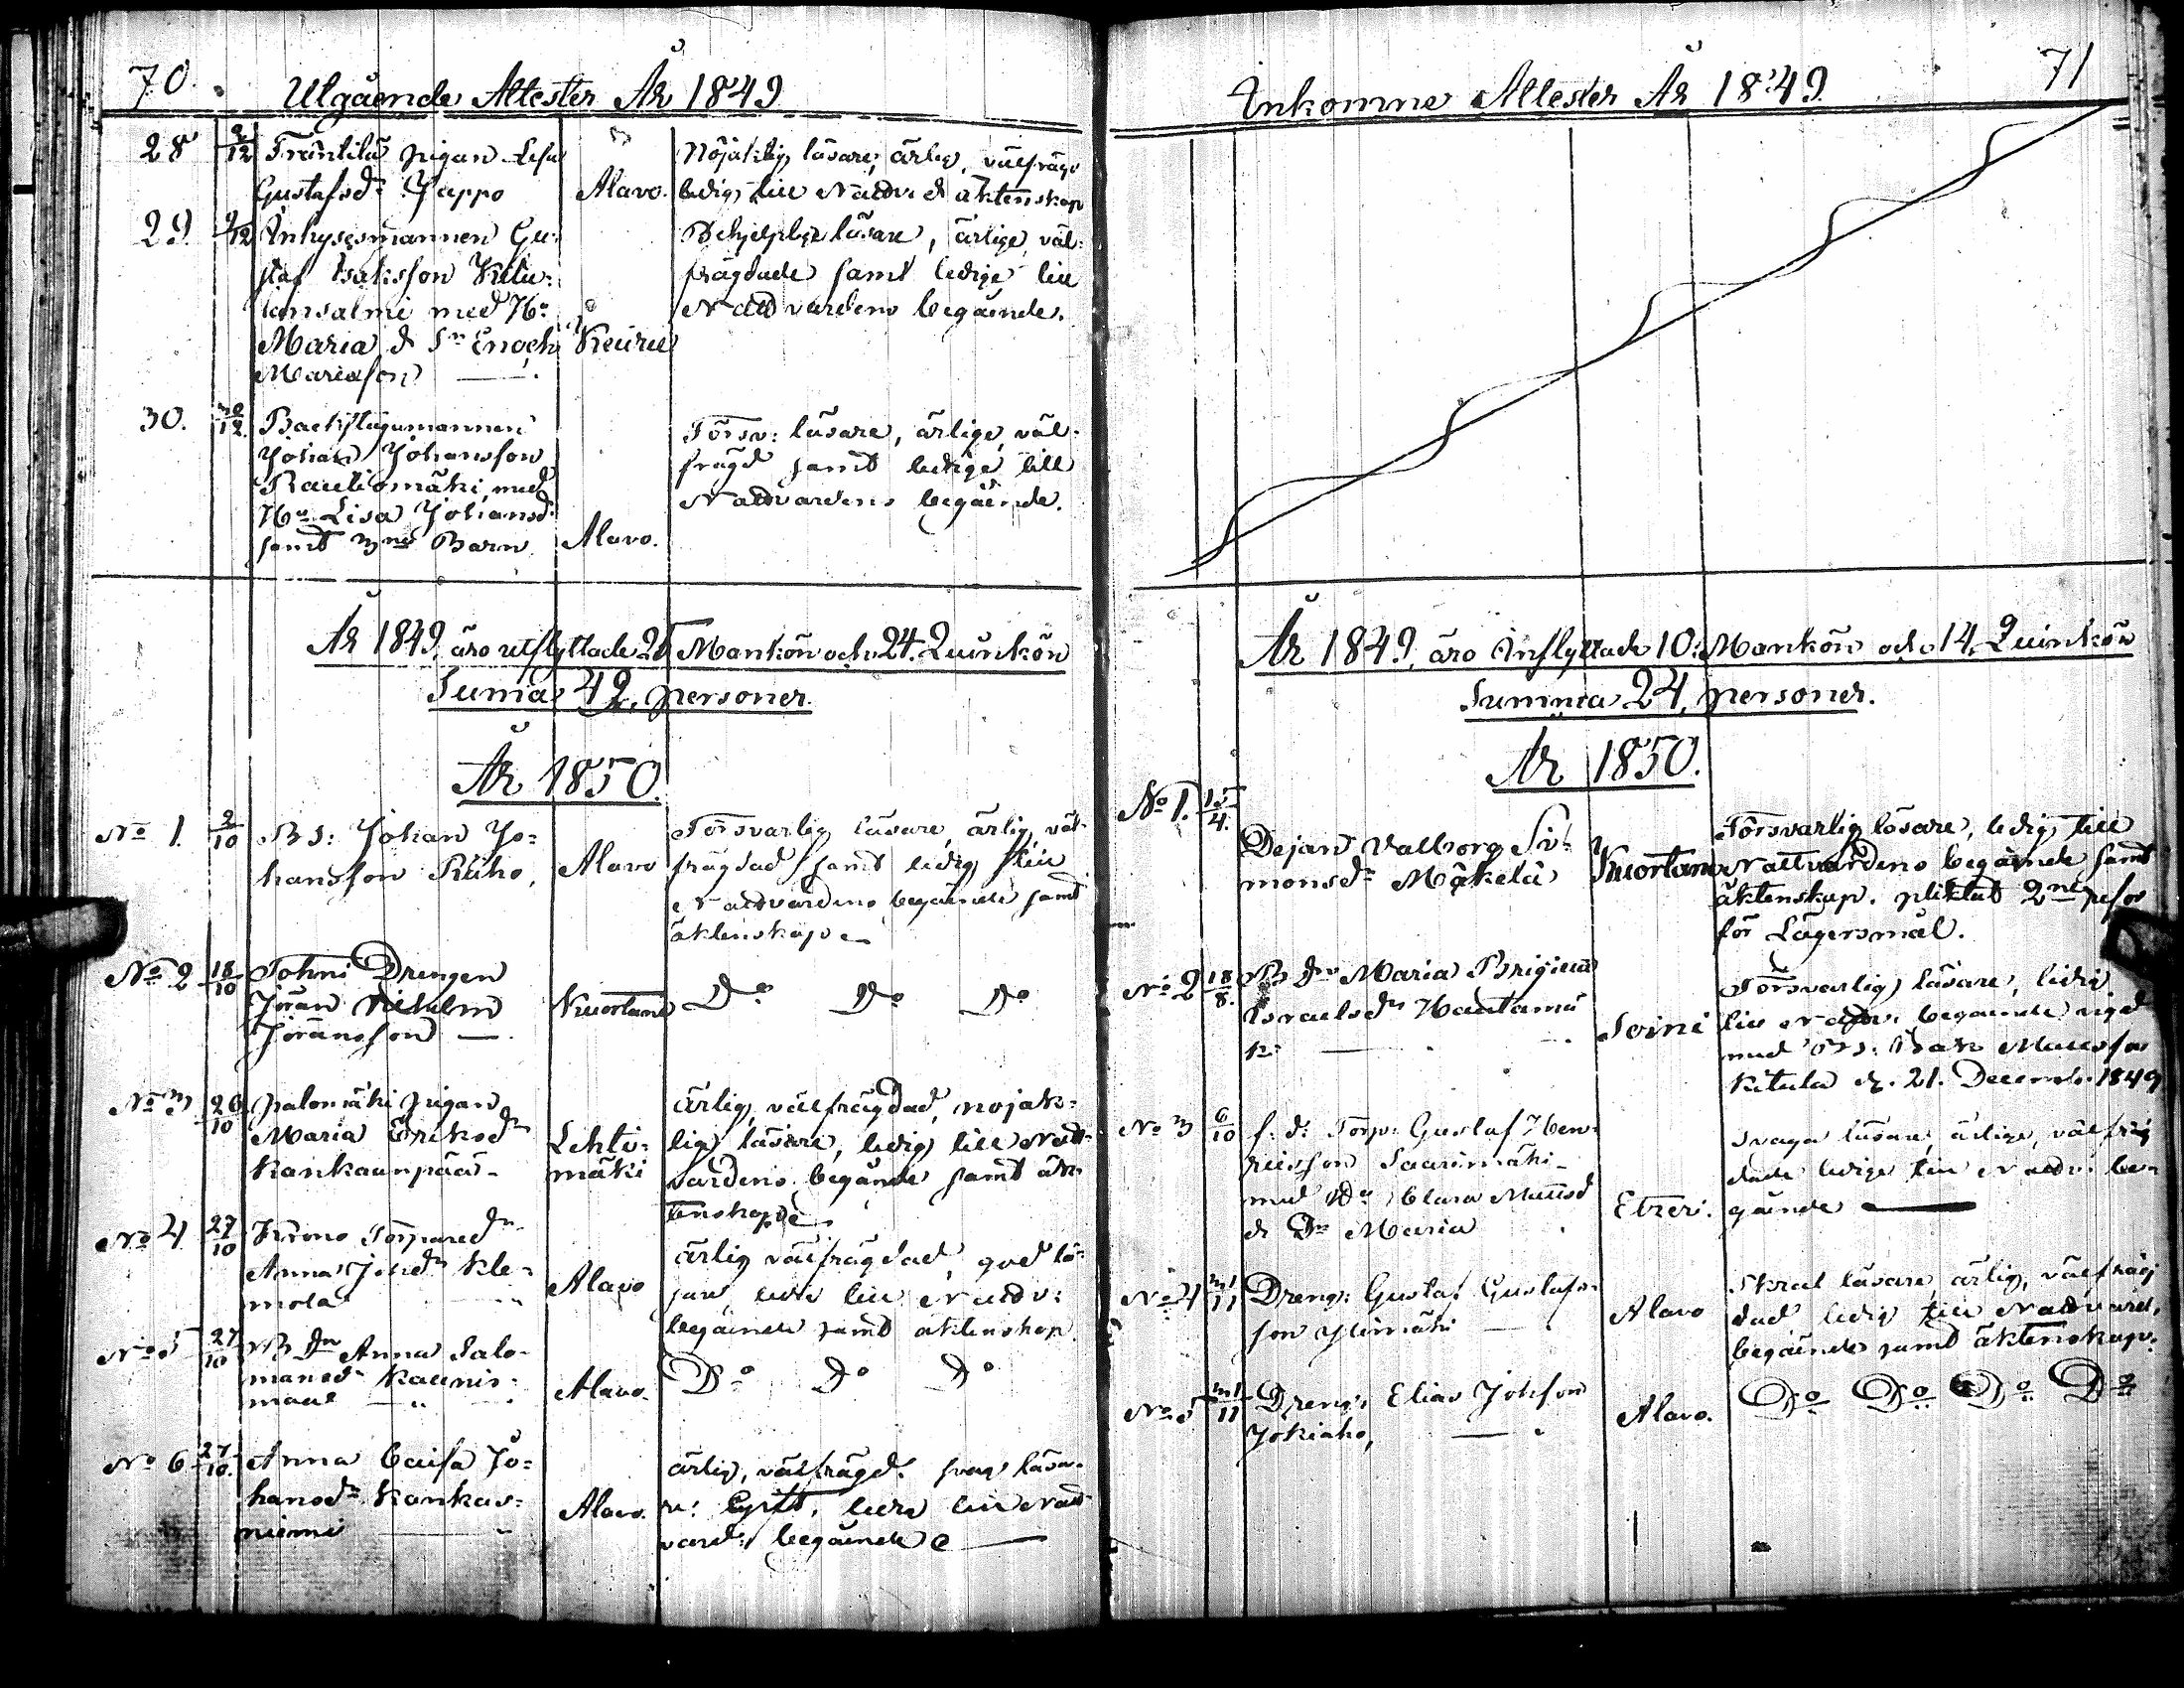 70.
Utgående Attester År 1849
28 2/12 Fräntilä pigan Lisa
Gustafsd:r Yappo
Alavo.
Nöjaktig läsare, ärlig, välfrägd
ledig till Nattv: & äktenskap
29. 9/12 Inhysesmannen Gu-
staf Isaksson
med H:o
Maria & S:n Enoch
Mariæson
Keuru
Behjelplige läsare, ärlige, väl-
frägdade samt ledige till
Nattvardens begående.
30. 30/12 Backstugumannen
Johan Johansson
Rautiomäki med
H:u Lisa Johansd:
samt 3ne Barn
Alavo.
Försv: läsare, ärlige, väl-
frägd samt ledige till
Nattvardens begående.
År 1849, äro utflyttade 25 Mankön och 24. Quinkön
Suma 49, personer.
År 1850.
No 1. 2/10 B S: Johan Jo-
hansson Riiho,
Alavo
Försvarlig läsare, ärlig, väl-
frägdad samt ledig till
Nattvardens begående samt
äktenskap
No 2 18/10 Tohni Drengen
Jöran Vilhelm
Jöransson
Kuortane
Do Do Do
No 3 20/10 Palomäki pigan
Maria Eriksd:r
Kankaanpää
Lehti-
mäki
ärlig, välfrägdad, nöjak-
lig läsare, ledig till Natt-
vardens begående samt äk-
tenskap
No 4 27/10 Krono Torpared:r
Anna Johsd:r Kle-
mola
Alavo
ärlig välfrägdad, god lä-
sare, ledig till Nattv:
begående samt äktenskap
No 5 27/10 B D:r Anna Salo-
monsd: Kaunis-
maa
Alavo.
Do Do Do
No 6 27/10. Anna Caisa Jo-
hansd:r Kankas-
niemi
Alavo.
ärlig, välfrägd. svag läsa-
re: ledig till Natt-
vard: begående
71
Inkomne Attester År 1849.
År 1849, äro Inflyttade 10. Mankön och 14, Quinkön
Summa 24, personer.
År 1850.
No 1. 15/4. Dejan Valborg Si-
monsd:r Mäkelä
Kuortane
Försvarlig läsare, ledig till
Nattvardens begående samt
äktenskap. pliktat 2ne
för Lägersmål.
No 2 18/8. B D:r Maria Brigitta
Israelsd:r Hautamä
ki
Soini
Försvarlig läsare, ledig
till Nattv: begående vigd
med BS: Isak Mattsson
Kitula d. 21. Decemb. 1849
No 3 6/10 f: d: Torp: Gustaf Hen-
riksson Saarimäki
med H:u Clara Mattsd
& D:r Maria
Etzeri.
Svaga läsare, ärlige, välfräg
dade ledige till Nattv: be-
gående
No 4 11 Dreng: Gustaf Gustafs-
son Ylimäki
Alavo
Skral läsare, ärlig, välfräg
dad ledig till Nattvard,
begående samt äktenskap.
No 5 11 Dreng: Elias Johsson
Jokiaho,
Alavo.
Do Do Do Do